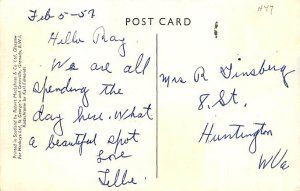 Feb 5-57
H47
POST CARD
Hello Ray
We are all
spending the
day here. What
a beautiful spot
Love
Tellie.
Mrs R Ginsberg
8. St.
Huntington
W Va